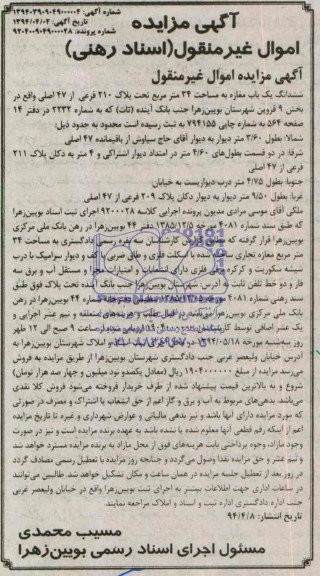 شماره آگهی: ۱۳۹۴۰۳۹۰۹۰۴۹۰۰۰۰۴
تاریخ آگهی: ۱۳۹۴/۰۴/۰۴
شماره پرونده: ۹۲۰۴۰۰۹۰۴۹۰۰۰۰۲۸
آگهی مزایده
اموال غیرمنقول(اسناد رهنی)
آگهی مزایده اموال غیرمنقول
ششدانگ یک باب مغازه به مساحت ۳۴ متر مربع تحت پلاک ۲۱۰ فرعی از ۴۷ اصلی واقع در
بخش ۹ قزوین شهرستان بویین‌زهرا جنب بانک آینده (تات) که به شماره ۲۲۳۲ در دفتر ۱۴
صفحه ۵۶۴ به شماره چاپی ۷۹۴۱۵۵ به ثبت رسیده است محدود به حدود ذیل:
شمالا: بطول ۳/۶۰ متر دیوار به دیوار آقای حاج سیاوش از باقیمانده ۴۷ اصلی
شرقا: در دو قسمت بطول‌های ۴/۶۰ متر در امتداد دیوار اشتراکی و ۴ متر به دکان پلاک ۲۱۱
فرعی از ۴۷ اصلی
جنوبا: بطول ۴/۷۵ متر درب دیواریست به خیابان
غربا: بطول ۹/۵۰ متر دیوار به دیوار دکان پلاک ۲۰۹ فرعی از ۴۷ اصلی
ملکی آقای موسی مرادی مدیون پرونده اجرایی کلاسه ۹۲۰۰۰۲۸ اجرای ثبت اسناد بویین‌زهرا
که طبق سند شماره ۴۰۸۱ مورخه ۱۳۸۵/۱۲/۵ دفتر ۴۴ بویین‌زهرا در رهن بانک ملی مرکزی
بویین‌زهرا قرار گرفته که مطابق گزارش کارشناسان سه نفره رسمی دادگستری به مساحت ۳۴
متر مربع مغازه تجاری ساخته شده با اسکلت فلزی و طاق ضربی و کف و دیوار سرامیک با درب
شیشه سکوریت و کرکره برقی فلزی دارای انشعابات و امتیازات مجزا و مستقل آب و برق سه
فاز و دو خط تلفن ثابت به آدرس: شهرستان بویین‌زهرا جنب بانک آینده تحت پلاک فوق طبق
سند رهنی شماره ۴۰۸۱ مورخه ۱۳۸۵/۱۲/۵ تنظیمی دفترخانه شماره ۴۴ بویین‌زهرا در رهن
بانک ملی مرکزی بویین‌زهرا می‌باشد در قبال طلب و هزینه‌های متعلقه و نیم عشر اجرایی و
یک عشر اضافی توسط کارشناسان رسمی ارزیابی شده از ساعت ۹ صبح الی ۱۲ ظهر
روز سه‌شنبه مورخه ۱۳۹۴/۰۵/۱۸ در محل اداره ثبت اسناد و املاک شهرستان بویین‌زهرا به
آدرس خیابان ولیعصر غربی جنب دادگستری شهرستان بویین‌زهرا از طریق مزایده به فروش
می‌رسد مزایده از مبلغ ۱۹۰۴۰۰۰۰۰۰ ریال (معادل یکصد و نود میلیون و چهار صد هزار تومان)
شروع و به بالاترین قیمت پیشنهاد شده از طرف خریدار فروخته می‌شود فروش کلا نقدی
می‌باشد. بدهی‌های مربوط به آب و برق و گاز اعم از حق انشعاب یا اشتراک و مصرف در صورتی
که مورد مزایده دارای آنها باشد و نیز بدهی مالیاتی و عوارض شهرداری و غیره تا تاریخ مزایده
اعم از اینکه رقم قطعی آنها معلوم شده یا نشده باشد به عهده برنده مزایده است و نیز در صورت
وجود مازاد، وجوه پرداختی بابت هزینه‌های فوق از محل مازاد به برنده مزایده مسترد خواهد شد
و نیم عشر و حق مزایده نقدا وصول می‌گردد و چنانچه روز مزایده با تعطیل رسمی مصادف گردد
در روز بعد از تعطیل جلسه مزایده در همان ساعت و مکان تشکیل خواهد شد. طالبین می‌توانند
در ساعات اداری جهت اطلاعات بیشتر به اجرای ثبت بویین‌زهرا واقع در خیابان ولیعصر غربی
جنب اداره دادگستری اداره ثبت و اسناد و املاک مراجعه نمایند.
تاریخ انتشار: ۹۴/۴/۸
مسیب محمدی
مسئول اجرای اسناد رسمی بویین‌زهرا